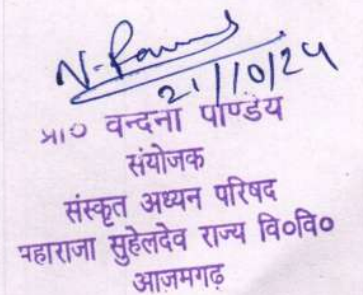 21/10/24
प्रा० वन्दना पाण्डेय
संयोजक
संस्कृत अध्यन परिषद
महाराजा सुहेलदेव राज्य वि०वि०
आजमगढ़